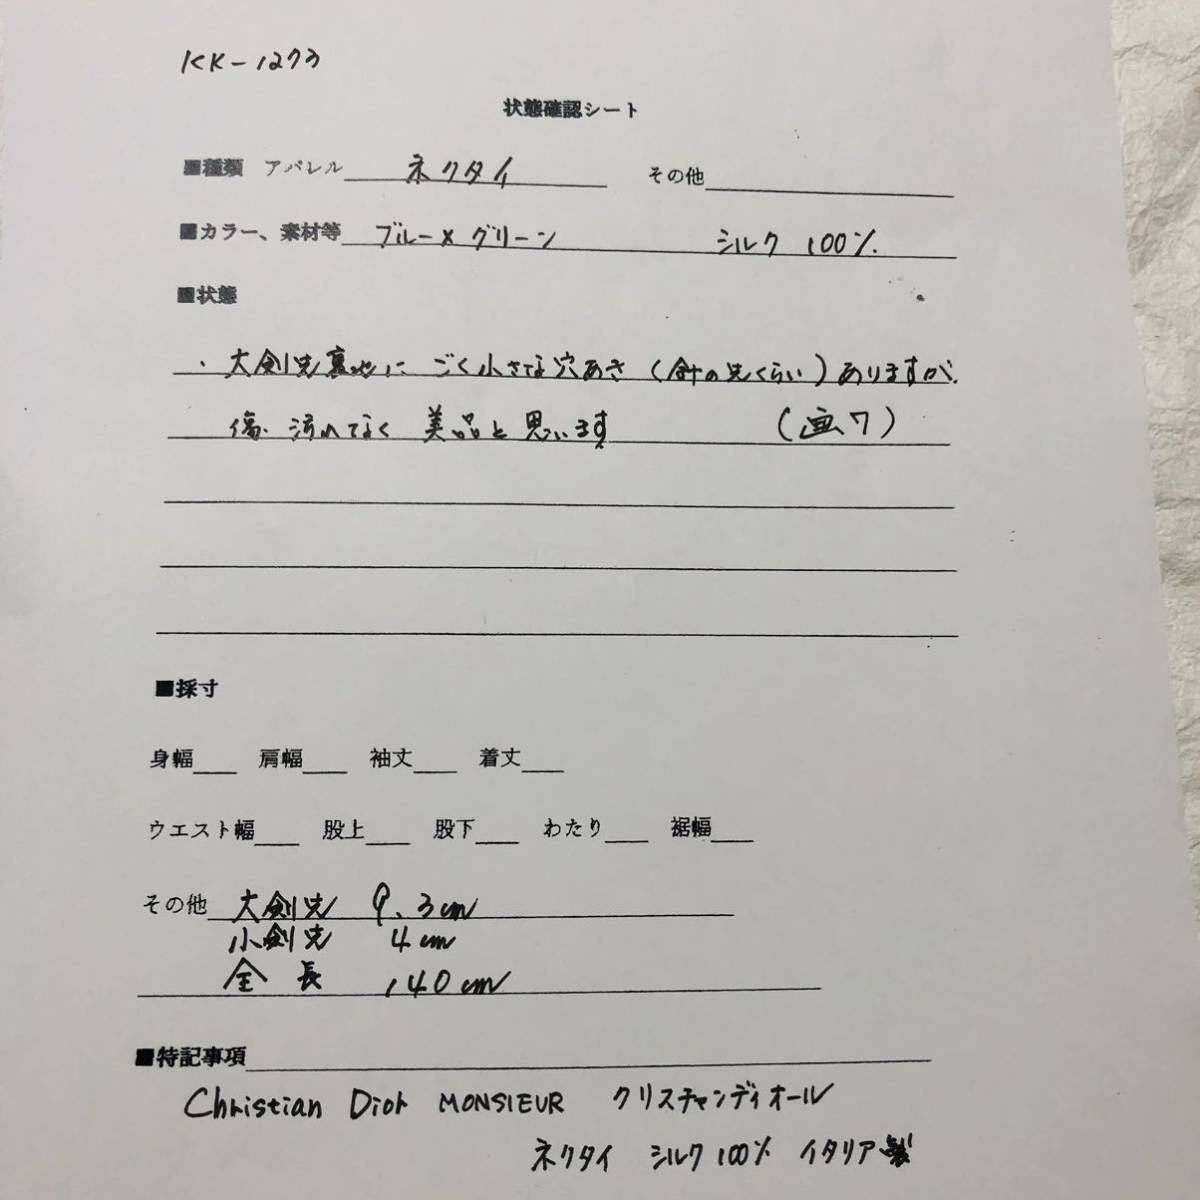 KK-1273
状態確認シート
■種類 アパレル ネクタイ その他
■カラー、素材等 ブルー×グリーン シルク 100%.
■状態
・大剣先裏地に ごく小さな穴あき(針の先くらい)ありますが、
傷.汚れなく 美品と思います (画7)
■採寸
身幅 肩幅 袖丈 着丈
ウエスト幅 股上 股下 わたり 裾幅
その他 大剣先 9.3cm
小剣先 4cm
全長 140cm
■特記事項
Christian Dior MONSIEUR クリスチャンディオール
ネクタイ シルク100% イタリア製